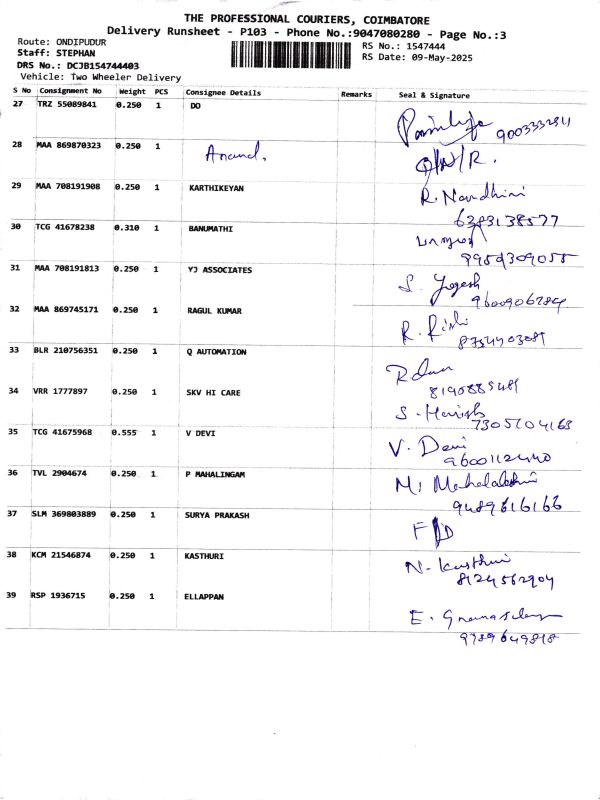 THE PROFESSIONAL COURIERS, COIMBATORE
Delivery Runsheet - P103 - Phone No.:9047080280 - Page No.:3
Route: ONDIPUDUR
Staff: STEPHAN
RS No.: 1547444
DRS No.: DCJB154744403
RS Date: 09-May-2025
Vehicle: Two Wheeler Delivery
S No Consignment No Weight PCS Consignee Details Remarks Seal & Signature
27 TRZ 55089841 0.250 1 DO
28 MAA 869870323 0.250 1 Anand.
29 MAA 708191908 0.250 1 KARTHIKEYAN R. Nandhini
6383138577
30 TCG 41678238 0.310 1 BANUMATHI
31 MAA 708191813 0.250 1 YJ ASSOCIATES S. Yogesh
9600906284
32 MAA 869745171 0.250 1 RAGUL KUMAR R. Rishi
33 BLR 210756351 0.250 1 Q AUTOMATION
34 VRR 1777897 0.250 1 SKV HI CARE S. Harish
7305104163
35 TCG 41675968 0.555 1 V DEVI V. Devi
36 TVL 2904674 0.250 1 P MAHALINGAM M. Mahalakshmi
9489616166
37 SLM 369803889 0.250 1 SURYA PRAKASH F/D
38 KCM 21546874 0.250 1 KASTHURI N. Kasthuri
8124562904
39 RSP 1936715 0.250 1 ELLAPPAN
9789649818